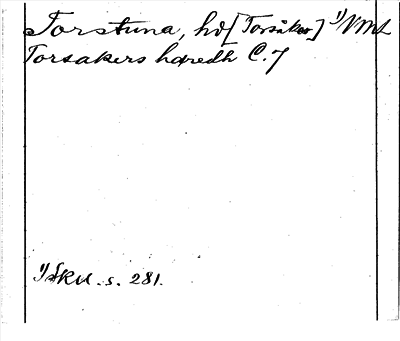 Torstuna, hd [Torsåker] 1) Vml
Torsakers hæredh C. 7
1) SRU. s. 281.